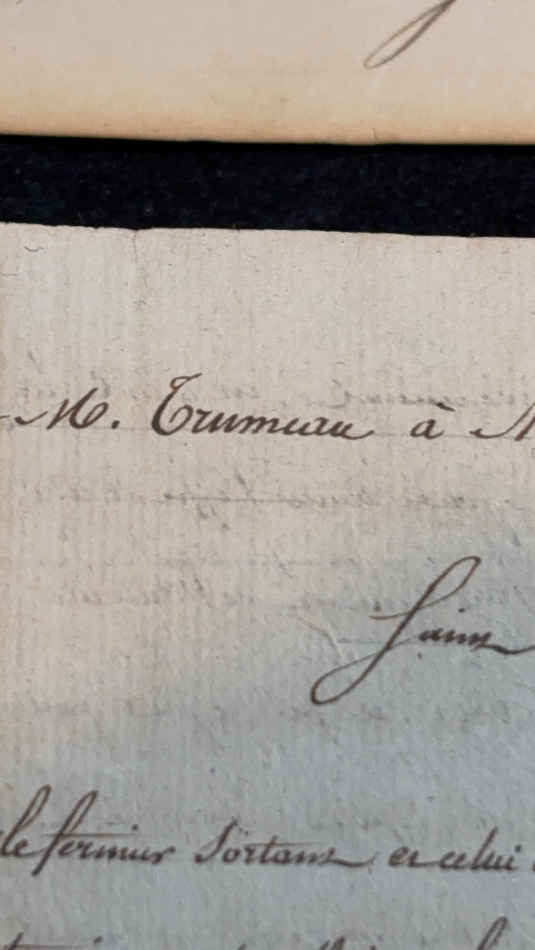 M. Trumeau à
Saint
le fermier sortant et celui